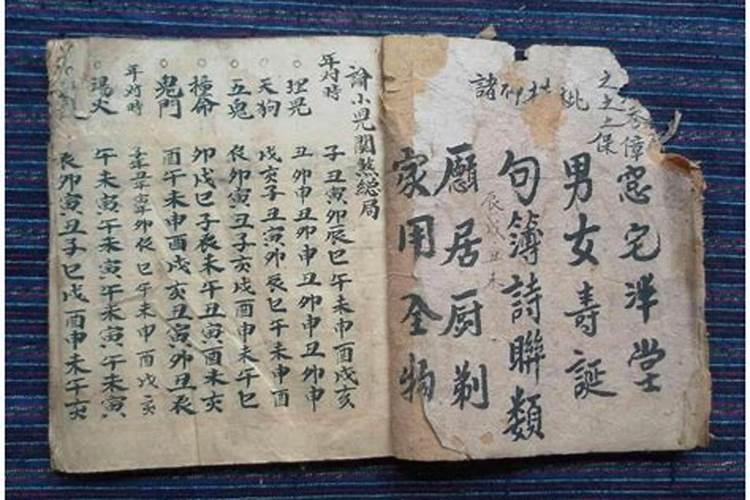 窓宅泮堂
男女壽誕
諸神
句簿詩聯類
辰戌丑未
廳居厨剃
家用全物
論小児関煞總局
年対時 子丑寅卯辰巳午未申酉戌亥
埋児 丑卯申丑卯申丑卯申丑卯申
天狗 戌亥子丑寅卯辰巳午未申酉
五鬼 辰卯寅丑子亥戌酉申未午巳
撞命 卯戌巳子辰未午丑酉未亥
鬼門 酉午未申酉戌亥丑寅卯丑辰
年対時 子丑寅卯辰巳午未申酉戌亥
湯火 午未寅午未寅午未寅午未寅
辰卯寅丑子巳戌酉申未午亥